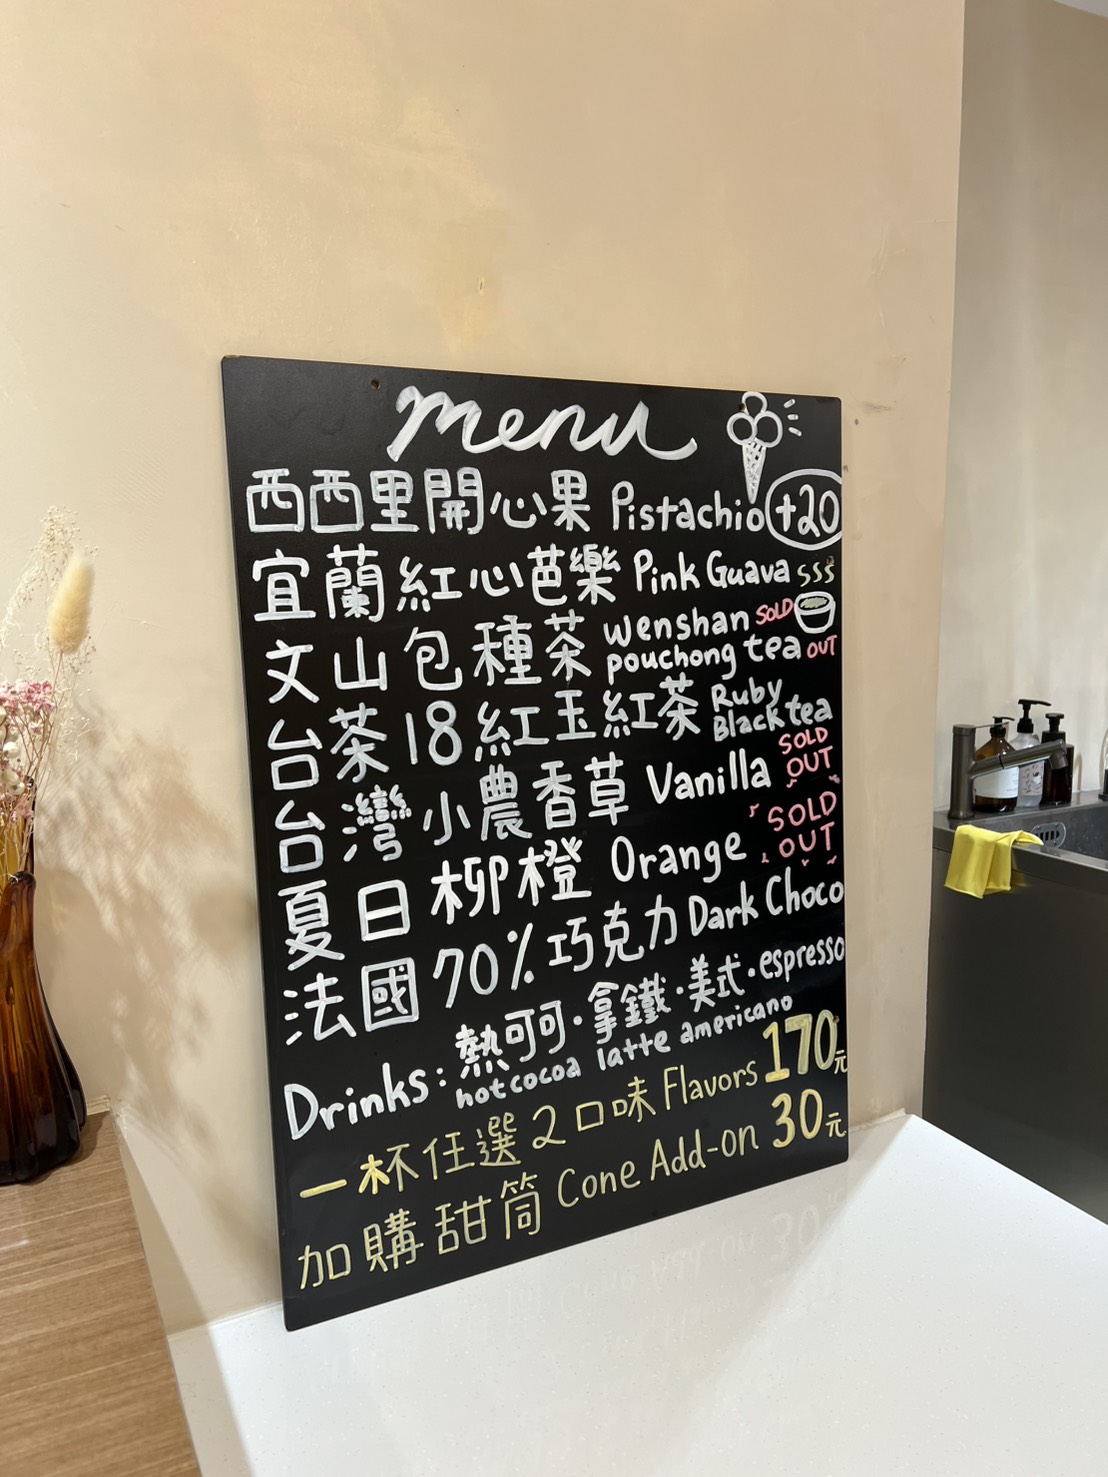 menu
西西里開心果 Pistachio +20
宜蘭紅心芭樂 Pink Guava
文山包種茶 Wenshan pouchong tea SOLD OUT
台茶18紅玉紅茶 Ruby Black tea
台灣小農香草 Vanilla SOLD OUT
夏日柳橙 Orange SOLD OUT
法國70%巧克力 Dark Choco
Drinks: 熱可可·拿鐵·美式·espresso
hot cocoa latte americano
一杯任選2口味 Flavors 170元
加購甜筒 Cone Add-on 30元